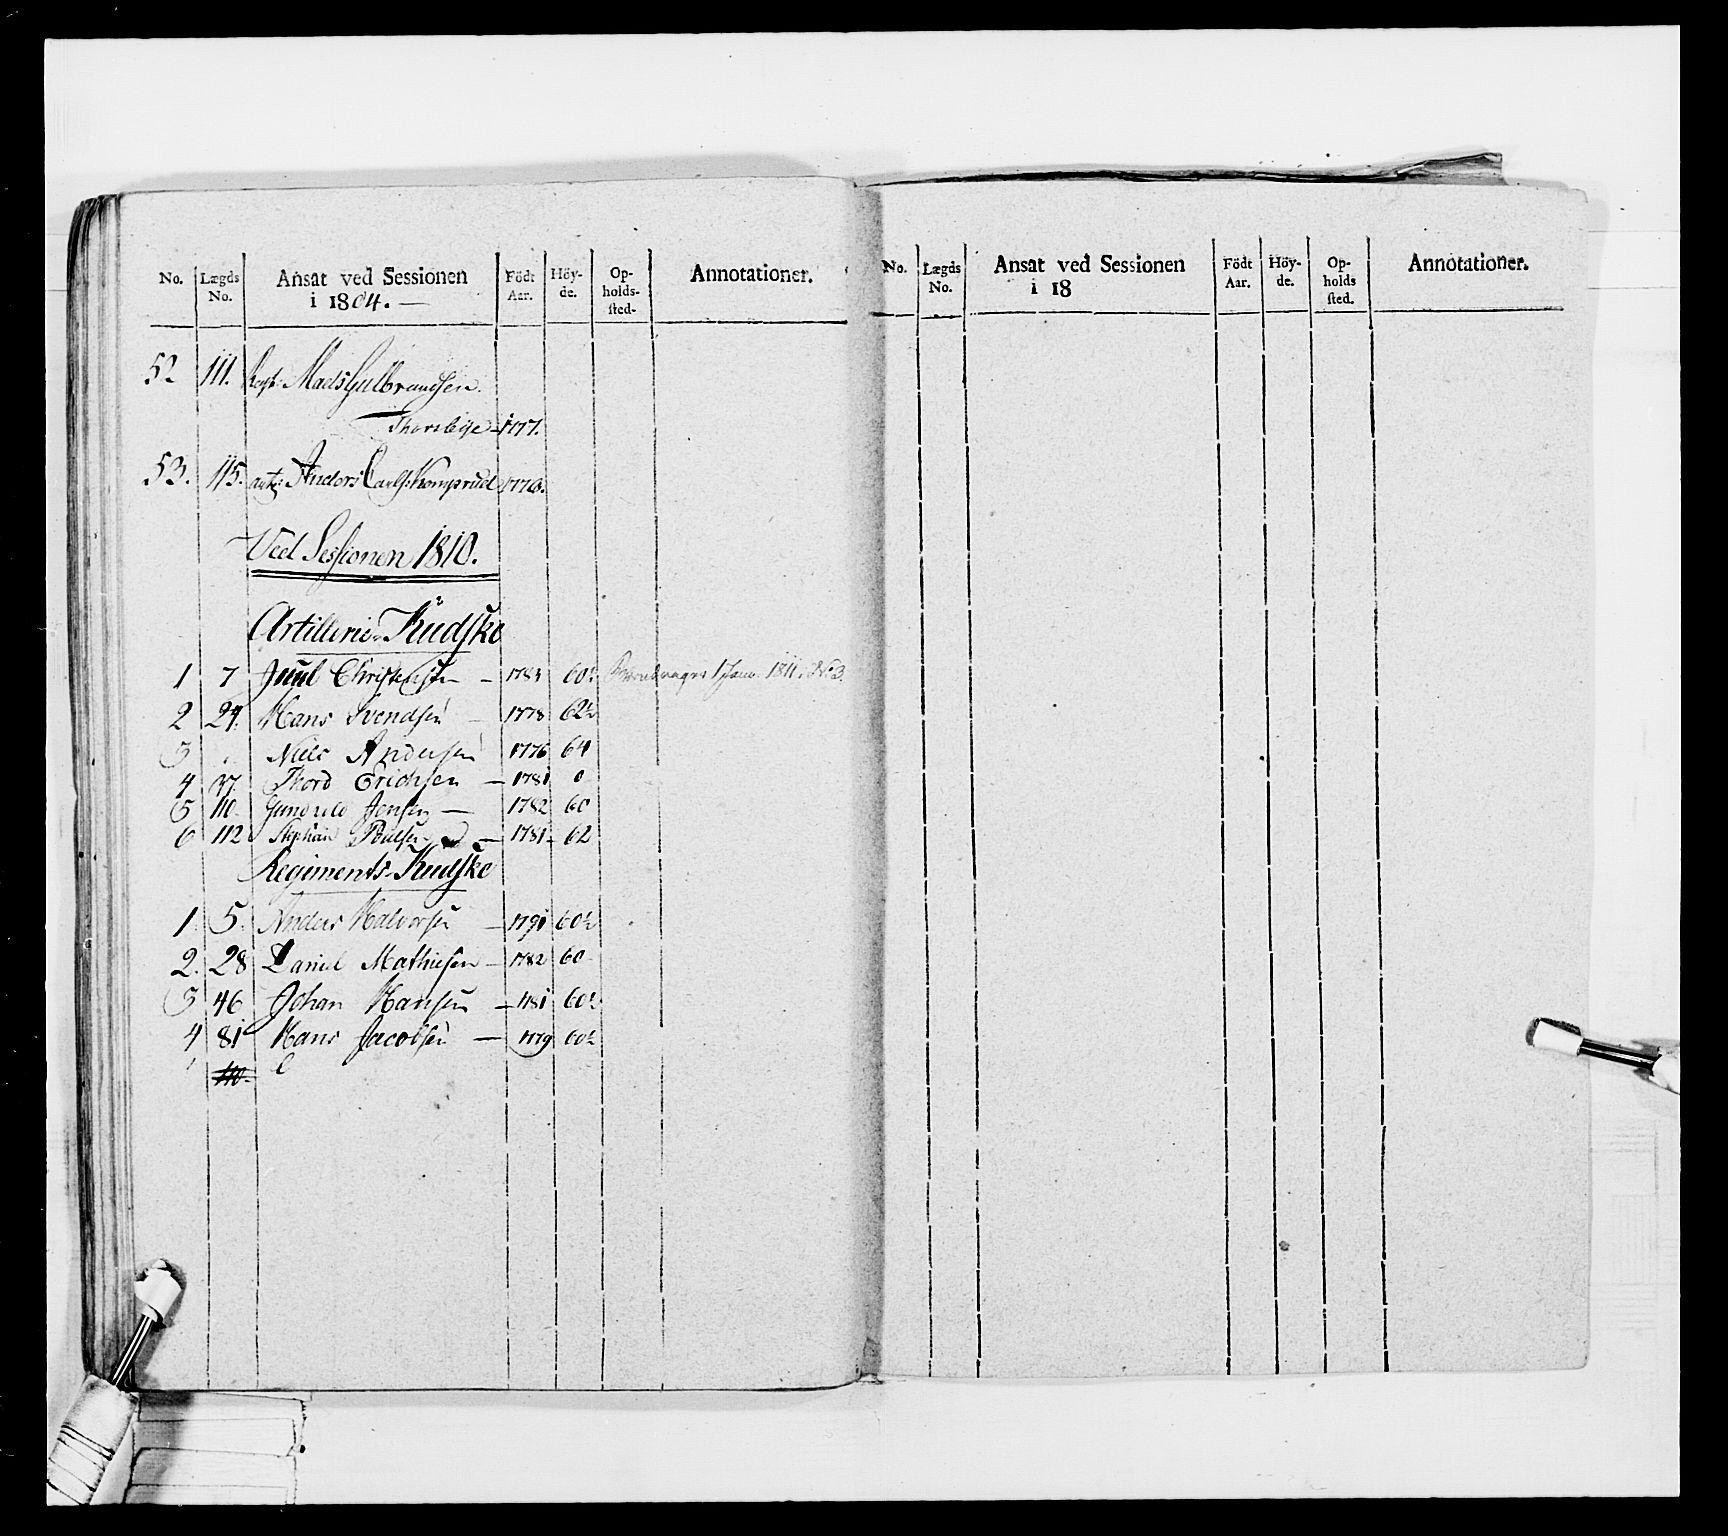 No. Lægds No. Ansat ved Sessionen i 1804. — Födt Aar. Höy-de. Op-holds-sted- Annotationer.
52 111. Regt: Mads Gulbrandsen.
1777.
53. 115. art: Anders Carls: 1776.
Ved Sessionen 1810.
Artillerie-Kudske
1 7 Juul Christensen — 1784 60½ 1 Janu. 1811. No 3.
2 27. Hans Svendsen — 1778 62½
3 Niels Andersen 1776 64
4 77. Thord Erichsen — 1781 0
5 110. Jensen — 1782 60
6 112 Stephan Poulsen — 1781 62
Regiments-Kudske
1. 5. Anders Halvorsen — 1791 60½
2. 28 Daniel Mathiesen — 1782 60
3 46 Johan Hansen — 1781 60½
4 81 Hans Jacobsen — 1779 60½
110.
No. Lægds No. Ansat ved Sessionen i 18 Födt Aar. Höy-de. Op-holds sted. Annotationer.